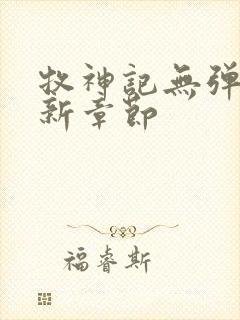 牧神記無弹
新章節
福睿斯